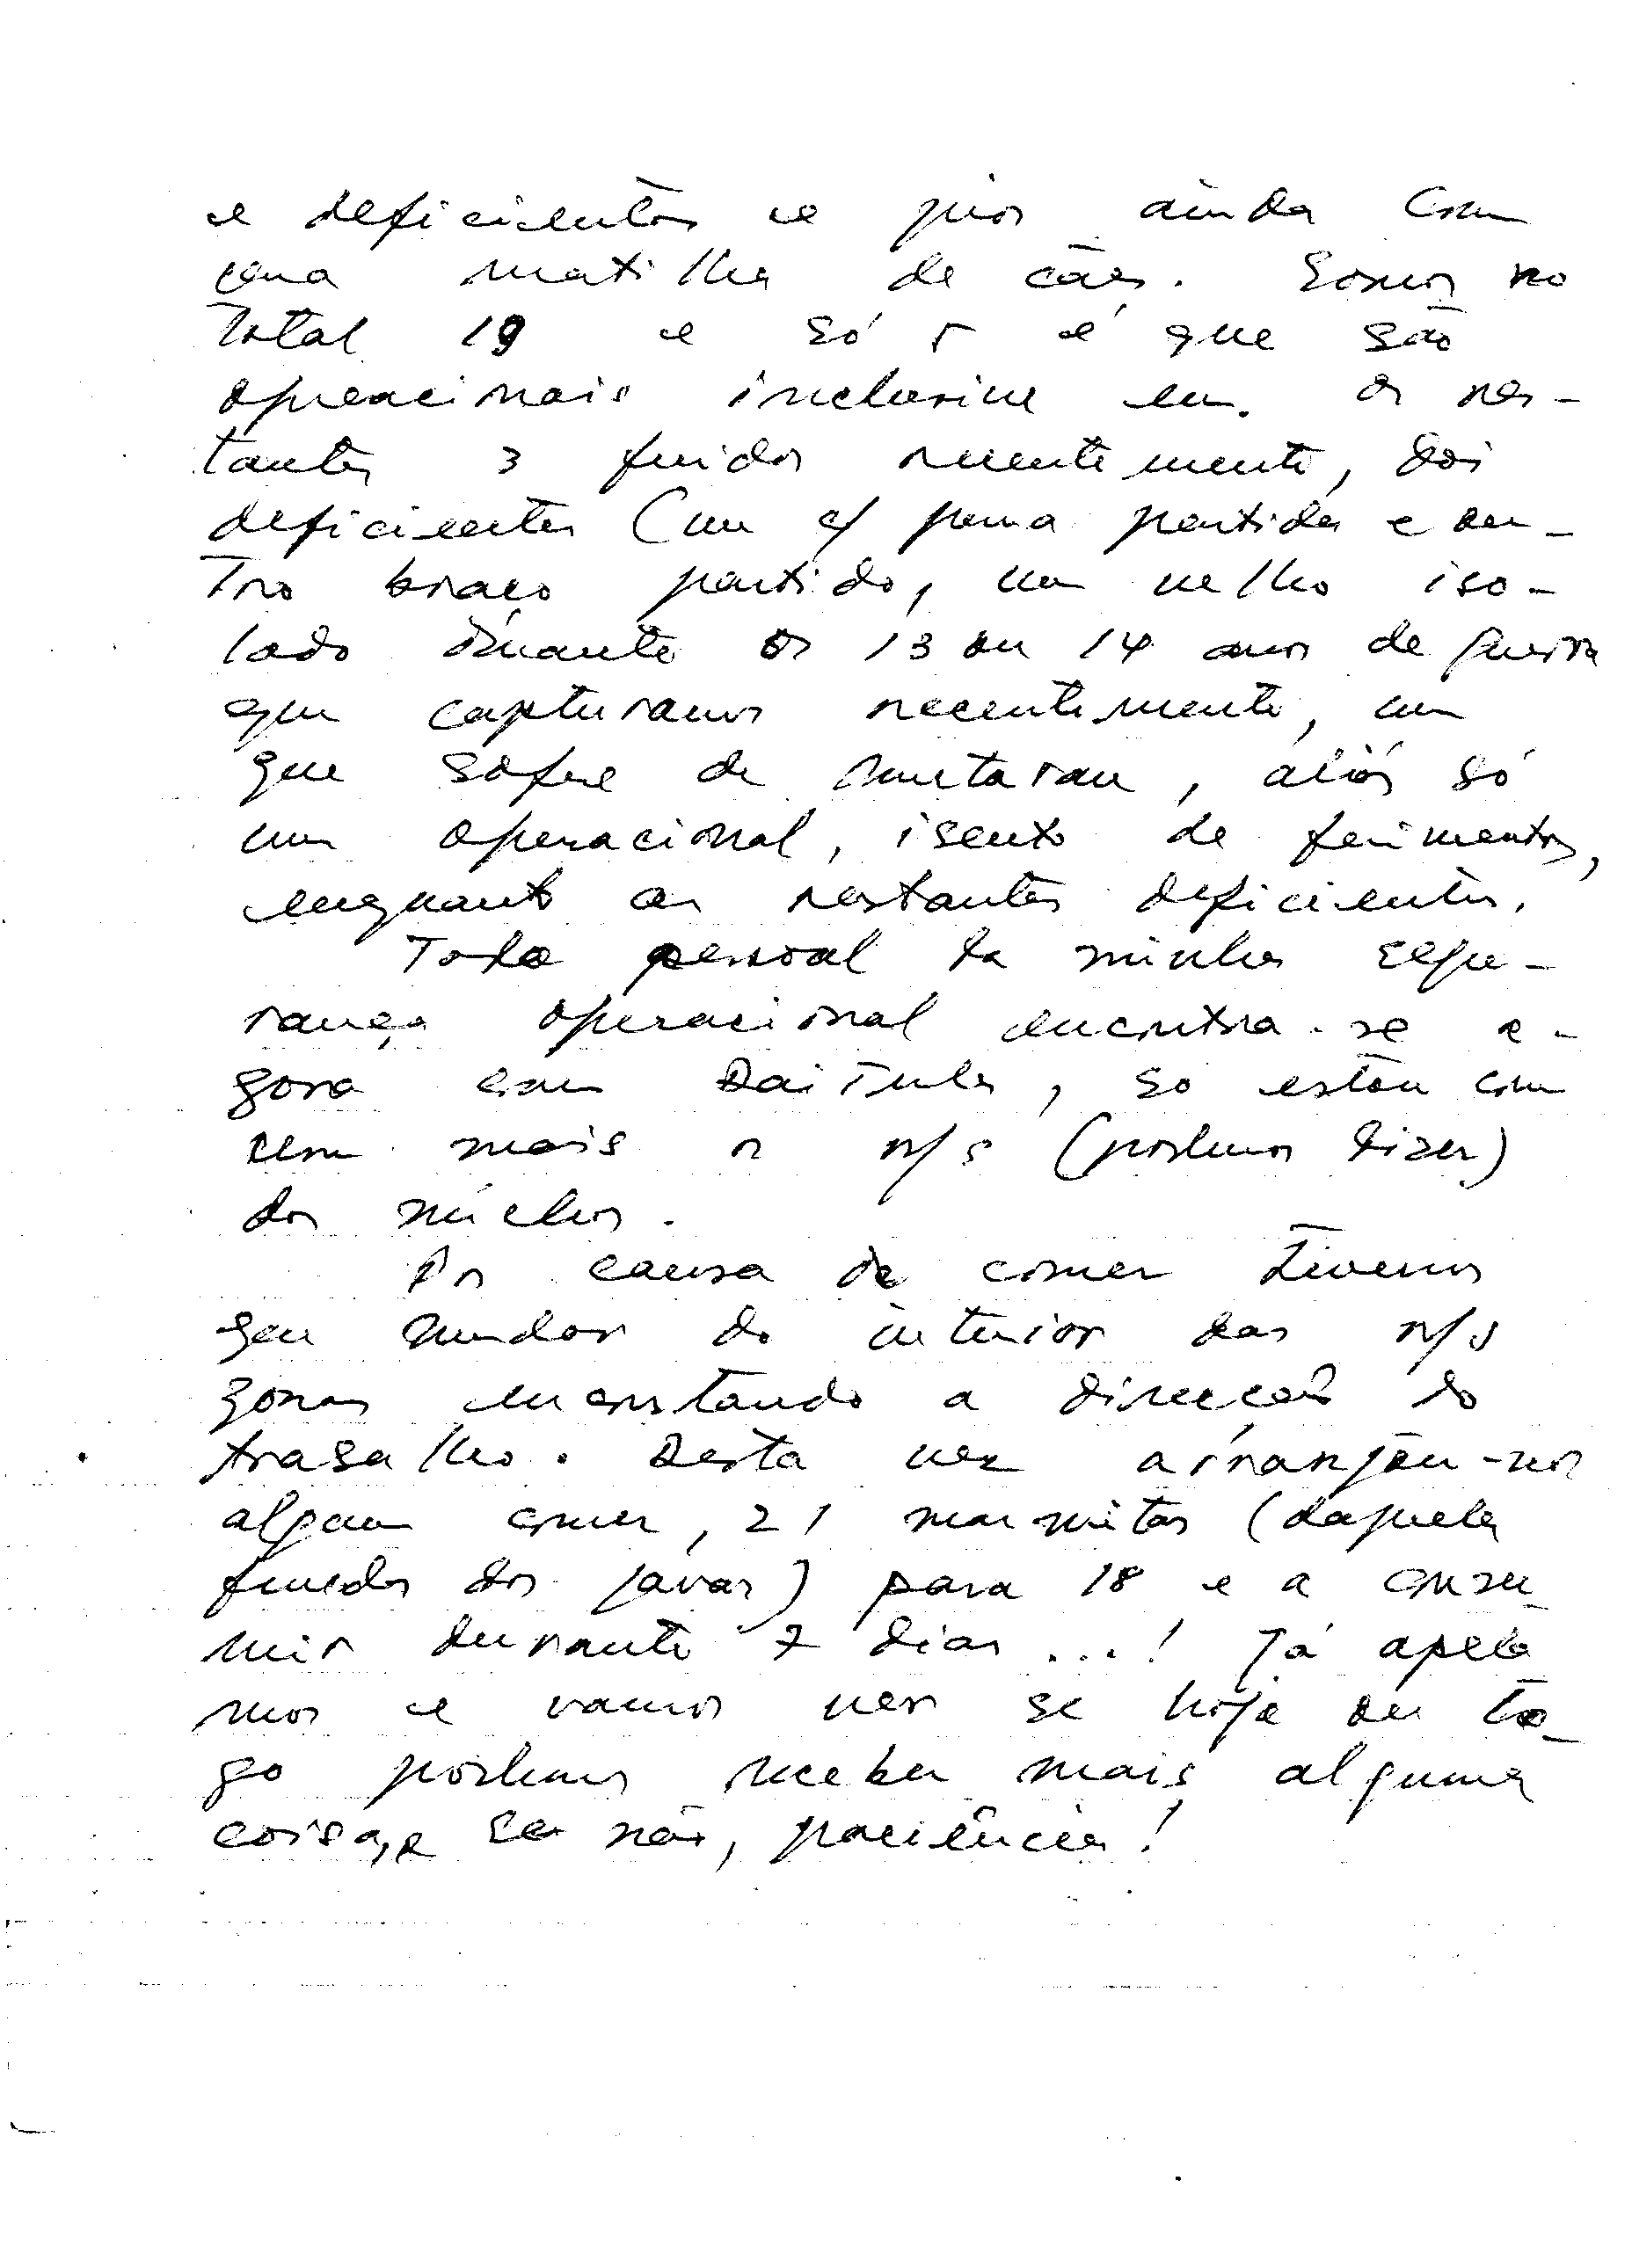 e deficientes e pior ainda com
uma matilha de cães. Somos no
total 19 e só 5 é que são
operacionais inclusive eu. Os res-
tantes 3 feridos recentemente, dois
deficientes (um c/ perna partida e ou-
tro braço partido, um velho iso-
lado durante os 13 ou 14 anos de guerra
que capturamos recentemente, um
que sofre de, aliás só
um operacional, isento de ferimentos,
enquanto os restantes deficientes.
Todo pessoal da minha segu-
rança operacional encontra-se a-
gora com Dai Tula, só estou com
um mais o n/s (podemos dizer)
dos núcleos.
Por causa de comer tivemos
que mudar do interior das n/s
zonas encostando a direcção do
trabalho. Desta vez arranjou-nos
algum comer, 21 marmitas (daquela
fuceda dos javas) para 18 e a consu-
mir durante 7 dias...! Já apelá
mos e vamos ver se hoje ou lo-
go podemos receber mais alguma
coisa, e se não, paciência!